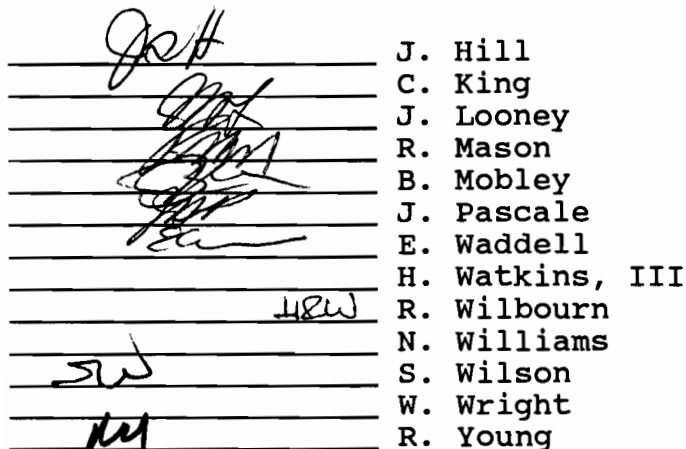 J. Hill
C. King
J. Looney
R. Mason
B. Mobley
J. Pascale
E. Waddell
H. Watkins, III
R. Wilbourn
N. Williams
SW S. Wilson
W. Wright
R. Young